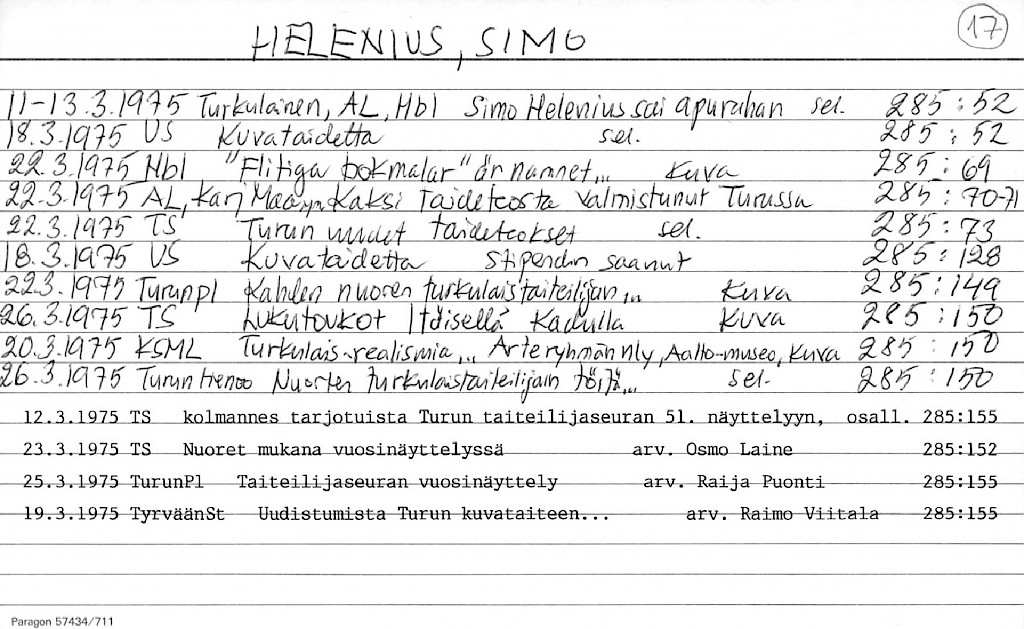 HELENIUS, SIMO 17
11-13.3.1975 Turkulainen, AL, Hbl Simo Helenius sai apurahan sel. 285:52
18.3.1975 US Kuvataidetta sel. 285:52
22.3.1975 Hbl "Flitiga bokmalar" är namnet... Kuva 285:69
22.3.1975 AL, Karj Maa ym Kaksi taideteosta valmistunut Turussa 285:70-71
22.3.1975 TS Turun uudet taideteokset sel. 285:73
18.3.1975 US Kuvataidetta stipendin saanut 285:128
22.3.1975 TurunPl Kahden nuoren turkulaistaiteilijan... Kuva 285:149
26.3.1975 TS Lukutoukot Itäisellä Kadulla Kuva 285:150
20.3.1975 KSML Turkulais-realismia... Arteryhmän nly, Aalto-museo, Kuva 285:150
26.3.1975 Turuntienoo Nuorten turkulaistaiteilijain töitä... sel. 285:150
12.3.1975 TS kolmannes tarjotuista Turun taiteilijaseuran 51. näyttelyyn, osall. 285:155
23.3.1975 TS Nuoret mukana vuosinäyttelyssä arv. Osmo Laine 285:152
25.3.1975 TurunPl Taiteilijaseuran vuosinäyttely arv. Raija Puonti 285:155
19.3.1975 TyrväänSt Uudistumista Turun kuvataiteen... arv. Raimo Viitala 285:155
Paragon 57434/711